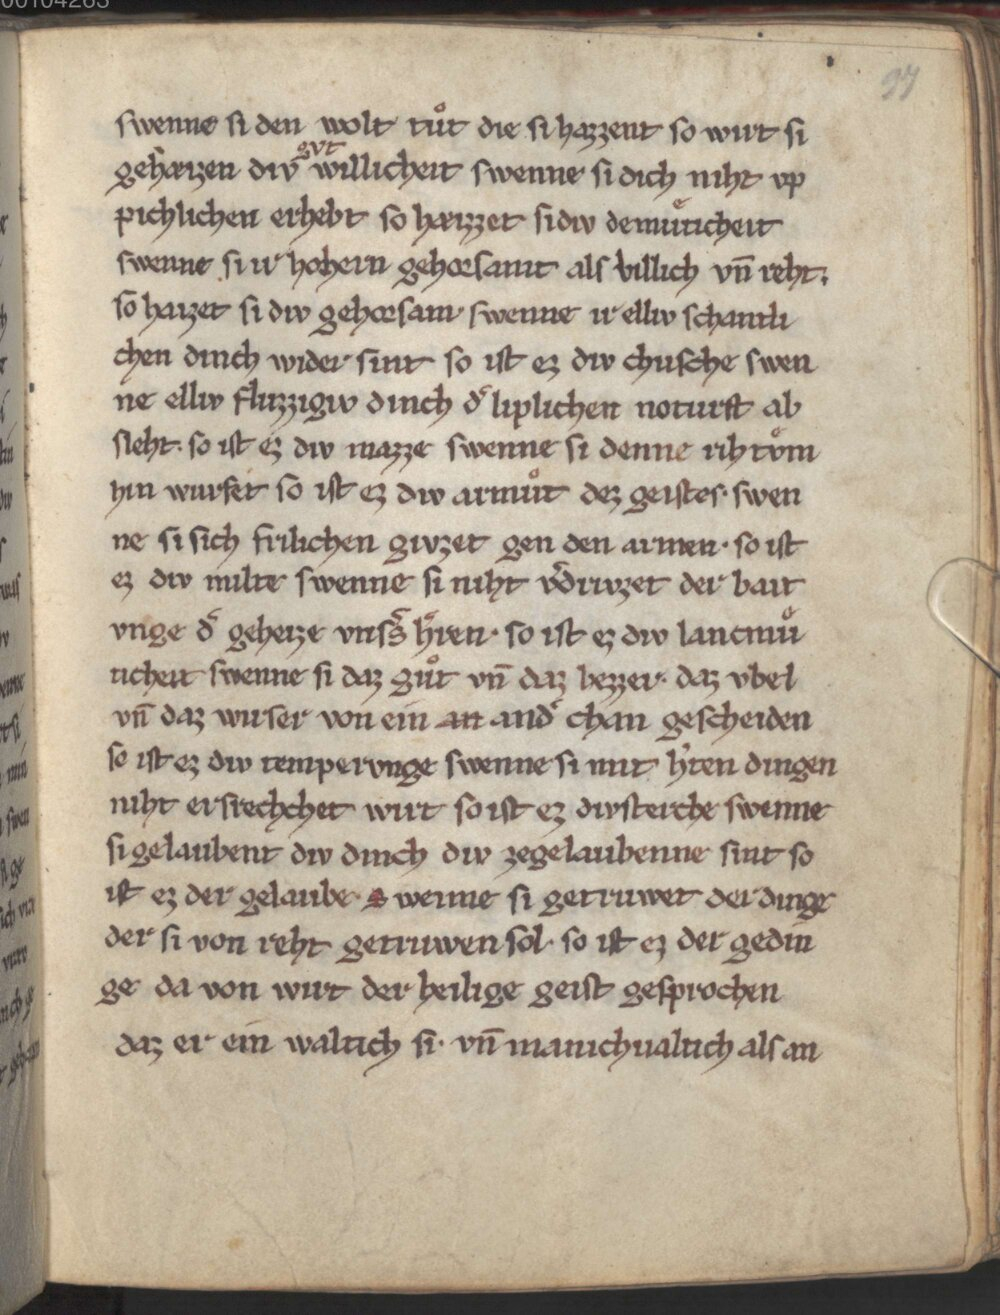 00104263
97
swenne si den wolt tuͦt die si hazzent so wirt si
gehæizen div gvt willicheit swenne si dich niht vp
pichlichen erhebt so hæizzet si div demuͤticheit
swenne si ir hohern gehorsamt als billich vn̄ reht.
so haizet si div gehorsam· swenne ir elliv schantli
chen dinch wider sint so ist ez div chusche swen
ne elliv fluzzigiv dinch d͛ liplichen noturft ab
sleht· so ist ez div mazze swenne si denne rihtvͦm
hin wurfet so ist ez div armuͦt dez geistes· swen
ne si sich frilichen givzet gen den armen· so ist
ez div milte swenne si niht v͛drivzet der bait
vnge d͛ geheize vnss͛ h͛ren· so ist ez div lancmuͤ
ticheit swenne si daz guͦt vn̄ daz bezzer· daz vbel
vn̄ daz wirser von ein an and͛ chan gescheiden
so ist ez div tempervnge swenne si mit h͛ten dingen
niht ersrechchet wirt so ist ez div sterche swenne
si gelaubent div dinch div zegelaubenne sint so
ist ez der gelaube· swenne si getruwet der dinge
der si von reht getruwen sol· so ist ez der gedin
ge da von wirt der heilige geist gesprochen
daz er ein waltich si· vn̄ manichualtich als an